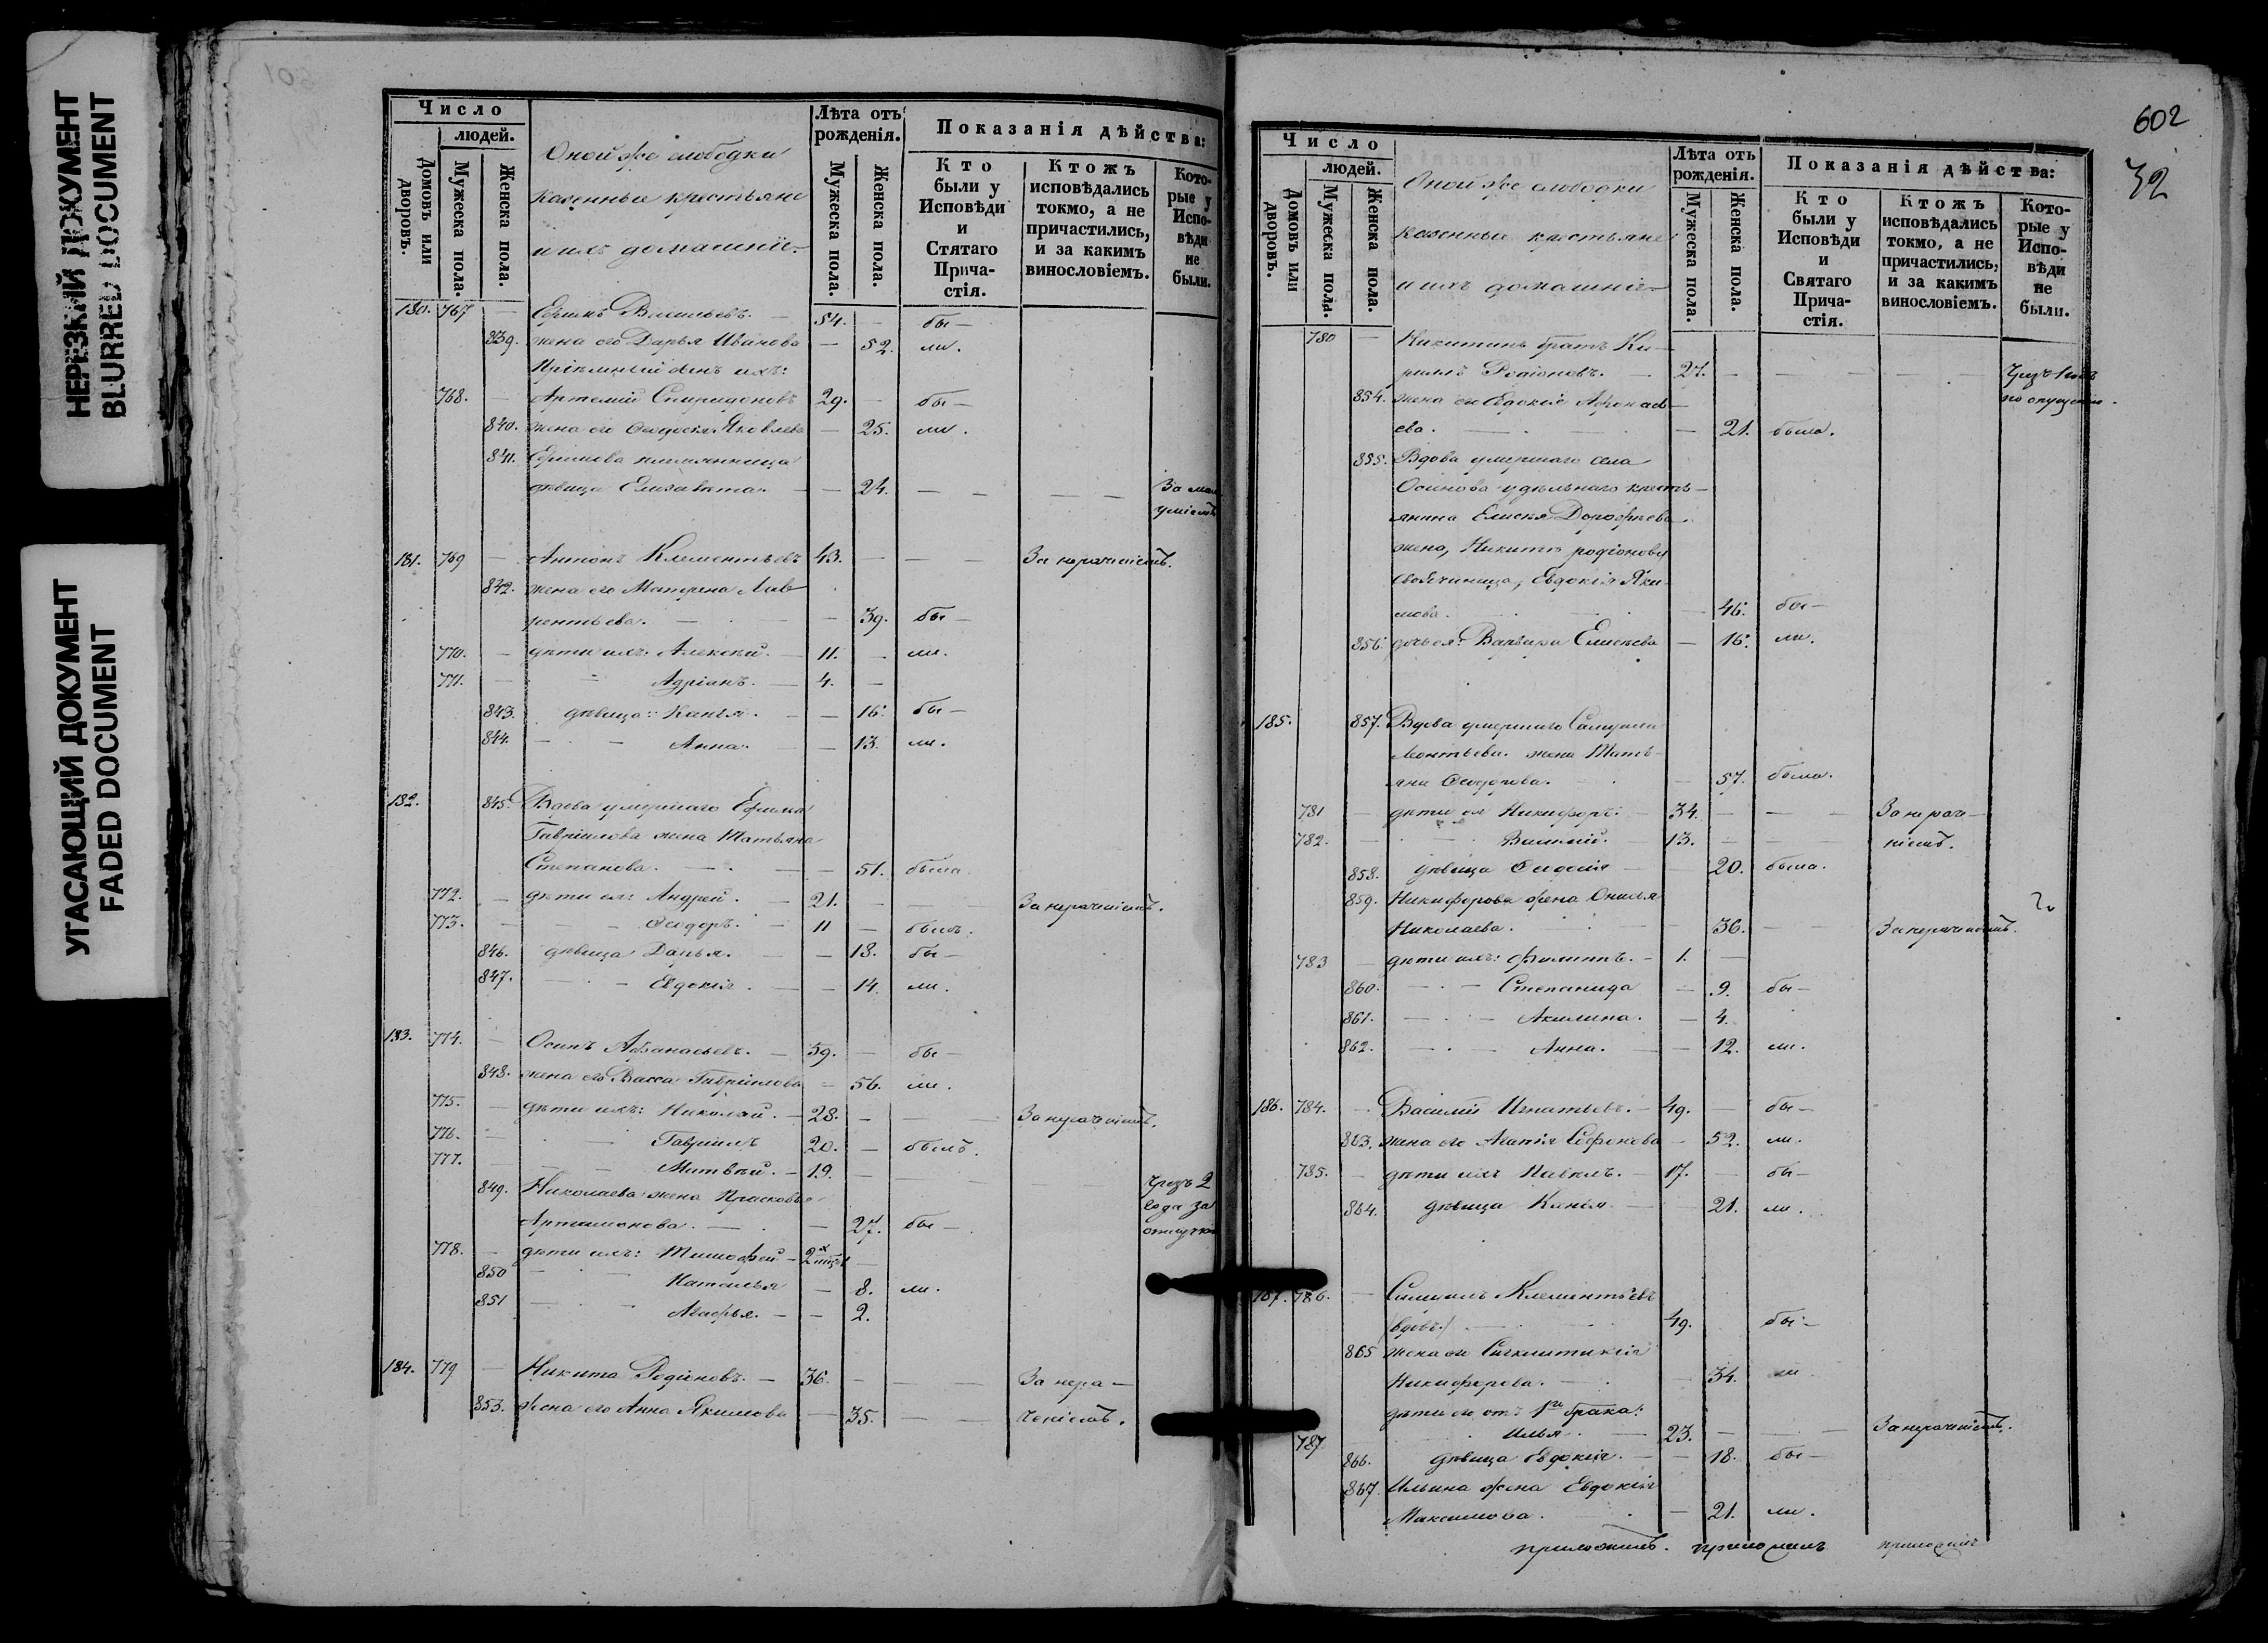 НЕРЕЗКИЙ ДОКУМЕНТ
BLURRED DOCUMENT
УГАСАЮЩИЙ ДОКУМЕНТ
FADED DOCUMENT
Число
людей.
Домовъ или дворовъ.
Мужеска пола.
Женска пола.
Оной же слободки
казенные крестьяне
и ихъ домашніе
Лѣта отъ рожденія.
Мужеска пола.
Женска пола.
Показанія дѣйства:
Кто были у Исповѣди и Стятаго Прича-стія.
Ктожъ исповѣдались токмо, а не причастились, и за какимъ винословіемъ.
Кото-рые у Испо-вѣди не были.
180. 767 — Ефимъ Васильевъ. — 54. — бы —
839. жена его Дарья Иванова — 52. ли.
Пріемный сынъ ихъ:
768. — Артемій Спиридоновъ 29. — бы —
840. жена его Ѳедосія Яковлева — 25. ли.
841. Ефимова племянница
дѣвица Елизавета. — — 24. — — — — За мало
уміемъ
181. 769 — Антонъ Клементьевъ 43. — — — За нераченіемъ.
842. жена его Матрена Лав
рентьева. — — 39. бы —
770. — дѣти ихъ: Алексѣй. — 11. — ли.
771. — Адріанъ. — 4. —
843. дѣвица: Ксенія. — — 16. бы —
844. — — Анна. — 13. ли.
182. 845. Вдова умершаго Ефима
Гавріилова жена Татьяна
Степанова. — — — 51. была.
772. — дѣти ея: Андрей. — 21. — — — За нераченіемъ.
773. — — — Ѳеодоръ. — 11 — былъ.
846. дѣвица Дарья. — — 18. бы —
847. — — Евдокія. — — 14. ли.
183. 774. — Осипъ Аѳанасьевъ. — 59. — бы —
848. жена его Васса Гавріилова — 56. ли.
775. — дѣти ихъ: Николай. — 28. — — За нераченіемъ.
776. — — Гавріилъ 20. — былъ.
777. — — Матвѣй. — 19. —
849. Николаева жена Прасковья
Артамонова. — — 27. бы —
Чрезъ 2
года за
отлучкою
778. — дѣти ихъ: Тимофей — 2х мцъ —
850 — — Наталья — 8. ли.
851 — — Агафья. — — 2.
184. 779 — Никита Родіоновъ. — 36. — — — За нера —
853. жена его Анна Якимова — 35. — — ченіемъ.
602
32
Число
людей.
Домовъ или дворовъ.
Мужеска пола.
Женска пола.
Оной же слободки
казенные крестьяне
и ихъ домашніе
Лѣта отъ рожденія.
Мужеска пола.
Женска пола.
Показанія дѣйства:
Кто были у Исповѣди и Святаго Прича-стія.
Ктожъ исповѣдались токмо, а не причастились, и за какимъ винословіемъ.
Кото-рые у Испо-вѣди не были.
780 — Никитинъ братъ Ки —
рилъ Родіоновъ. — 27. — — — — Чрезъ 1 годъ
по опущенію.
854. жена его Евдокія Афонась —
ева. — — 21. была.
855. Вдова умершаго села
Осинова удѣльнаго кресть —
янина Елисея Дорофѣева
жена, Никиты родіонова
своячиница, Евдокія Яки
мова. — 46. бы —
856. дочь ея: Варвара Елисѣева — 16. ли.
185. 857. Вдова умершаго Самуила
Леонтьева жена Татья
яна Ѳеодорова. — 57. была.
781 — дѣти ея Никифоръ: — 34. — — — За нераче —
782. — — Василій. — 13. — — ніемъ.
858. дѣвица Ѳедосія — 20. была.
859. Никифорова жена
Николаева. — — 36. — — За нераченіемъ.
783 — дѣти ихъ: Филиппъ. — 1. —
860. — — Степанида — 9. бы —
861. — — Акилина. — 4.
862. — — Анна. — 12. ли.
186. 784. — Василій Игнатьевъ. — 49. — бы —
863. жена его Агапія Софонова — 52. ли.
785. — дѣти ихъ Павелъ. — 17. — бы —
864. дѣвица Ксенія. — — 21. ли.
187. 786. — Самуилъ Клементьевъ
(вдовъ.) — 49. бы —
865 жена его Синклитикія
Никифорова. — — 34. ли
дѣти его отъ 1го брака:
787 Илья. — 23. — — — За нераченіемъ.
866. дѣвица Евдокія. — — 18. бы —
867. Ильина жена Евдокія
Максимова. — — 21. ли.